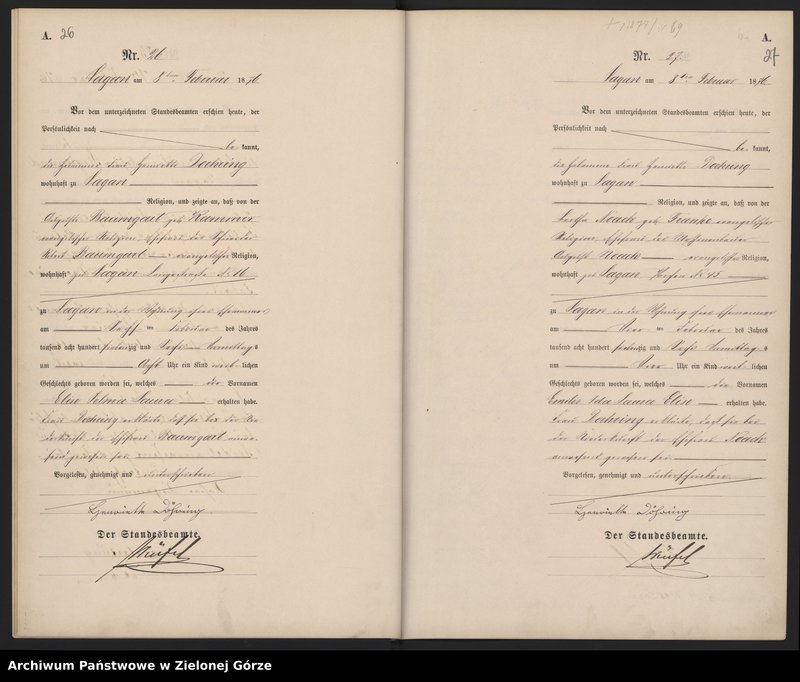 A. 26
Nr. 26
Sagan am 8ten Februar 1876.
Vor dem unterzeichneten Standesbeamten erschien heute, der
Persönlichkeit nach
be kannt,
die Hebamme Frau Henriette Doehring
wohnhaft zu Sagan
Religion, und zeigte an, daß von der
Baumgart geb. Kammer
evangelischer Religion, Ehefrau des
Baumgart evangelischer Religion,
wohnhaft zu Sagan 16
zu Sagan in der Wohnung ihres Ehemannes
am Februar des Jahres
tausend acht hundert siebenzig und sechs
um Acht Uhr ein Kind weib- lichen
Geschlechts geboren worden sei, welches die Vornamen
Elise Selma erhalten habe.
Frau Doehring erklärte, daß sie bei der Nie-
derkunft der Ehefrau Baumgart anwe-
send gewesen sei.
Vorgelesen, genehmigt und unterschrieben
Henriette Döhring
Der Standesbeamte.
A.
27
Nr. 27
Sagan am 8ten Februar 1876.
Vor dem unterzeichneten Standesbeamten erschien heute, der
Persönlichkeit nach
be kannt,
die Hebamme Frau Henriette Doehring
wohnhaft zu Sagan
Religion, und zeigte an, daß von der
Noack geb. Franke evangelischer
Religion, Ehefrau des
Noack evangelischer Religion,
wohnhaft zu Sagan 45
zu Sagan in der Wohnung ihres Ehemannes
am Februar des Jahres
tausend acht hundert siebenzig und sechs
um Vier Uhr ein Kind weib- lichen
Geschlechts geboren worden sei, welches die Vornamen
Ida Elise erhalten habe.
Frau Doehring erklärte, daß sie bei
der Niederkunft der Ehefrau Noack
anwesend gewesen sei.
Vorgelesen, genehmigt und unterschrieben
Henriette Döhring
Der Standesbeamte.
Archiwum Państwowe w Zielonej Górze